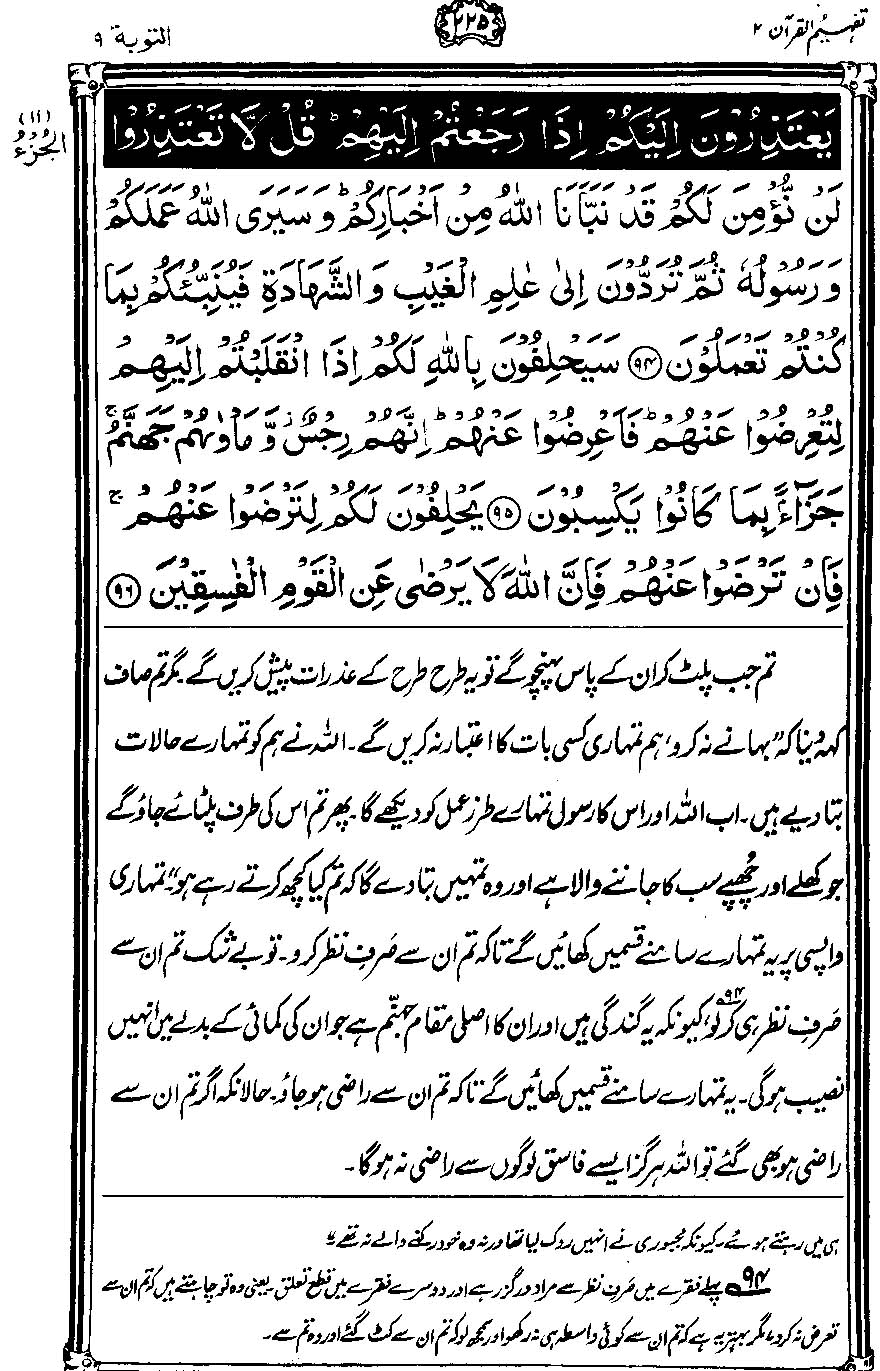 تفہیم القرآن ۲
۲۲۵
التوبة ۹
الجزء (۱۱)
يَعْتَذِرُوْنَ اِلَيْكُمْ اِذَا رَجَعْتُمْ اِلَيْهِمْ ؕ قُلْ لَّا تَعْتَذِرُوْا
لَنْ نُّؤْمِنَ لَكُمْ قَدْ نَبَّاَنَا اللّٰهُ مِنْ اَخْبَارِكُمْ ؕ وَسَيَرَى اللّٰهُ عَمَلَكُمْ
وَرَسُوْلُهٗ ثُمَّ تُرَدُّوْنَ اِلٰى عٰلِمِ الْغَيْبِ وَالشَّهَادَةِ فَيُنَبِّئُكُمْ بِمَا
كُنْتُمْ تَعْمَلُوْنَ ﴿۹۴﴾ سَيَحْلِفُوْنَ بِاللّٰهِ لَكُمْ اِذَا انْقَلَبْتُمْ اِلَيْهِمْ
لِتُعْرِضُوْا عَنْهُمْ ؕ فَاَعْرِضُوْا عَنْهُمْ ؕ اِنَّهُمْ رِجْسٌ ز وَّمَاْوٰىهُمْ جَهَنَّمُ ۚ
جَزَآءًۢ بِمَا كَانُوْا يَكْسِبُوْنَ ﴿۹۵﴾ يَحْلِفُوْنَ لَكُمْ لِتَرْضَوْا عَنْهُمْ ۚ
فَاِنْ تَرْضَوْا عَنْهُمْ فَاِنَّ اللّٰهَ لَا يَرْضٰى عَنِ الْقَوْمِ الْفٰسِقِيْنَ ﴿۹۶﴾
تم جب پلٹ کر ان کے پاس پہنچو گے تو یہ طرح طرح کے عذرات پیش کریں گے۔ مگر تم صاف
کہہ دینا کہ ”بہانے نہ کرو، ہم تمہاری کسی بات کا اعتبار نہ کریں گے۔ اللہ نے ہم کو تمہارے حالات
بتا دیے ہیں۔ اب اللہ اور اس کا رسول تمہارے طرزِ عمل کو دیکھے گا۔ پھر تم اس کی طرف پلٹائے جاؤ گے
جو کھلے اور چُھپے سب کا جاننے والا ہے اور وہ تمہیں بتا دے گا کہ تم کیا کچھ کرتے رہے ہو“۔ تمہاری
واپسی پر یہ تمہارے سامنے قسمیں کھائیں گے تاکہ تم ان سے صَرفِ نظر کرو۔ تو بے شک تم ان سے
صَرفِ نظر ہی کر لو،۹۴ کیونکہ یہ گندگی ہیں اور ان کا اصلی مقام جہنّم ہے جو ان کی کمائی کے بدلے میں انہیں
نصیب ہوگی۔ یہ تمہارے سامنے قسمیں کھائیں گے تاکہ تم ان سے راضی ہو جاؤ۔ حالانکہ اگر تم ان سے
راضی ہو بھی گئے تو اللہ ہرگز ایسے فاسق لوگوں سے راضی نہ ہوگا۔
ہی میں رہتے ہوئے۔ کیونکہ مجبوری نے انہیں روک لیا تھا ورنہ وہ خود رکنے والے نہ تھے“
۹۴ پہلے فقرے میں صَرفِ نظر سے مراد درگزر ہے اور دوسرے فقرے میں قطع تعلق۔ یعنی وہ تو چاہتے ہیں کہ تم ان سے
تعرض نہ کرو، مگر بہتر یہ ہے کہ تم ان سے کوئی واسطہ ہی نہ رکھو اور سمجھ لو کہ تم ان سے کٹ گئے اور وہ تم سے۔